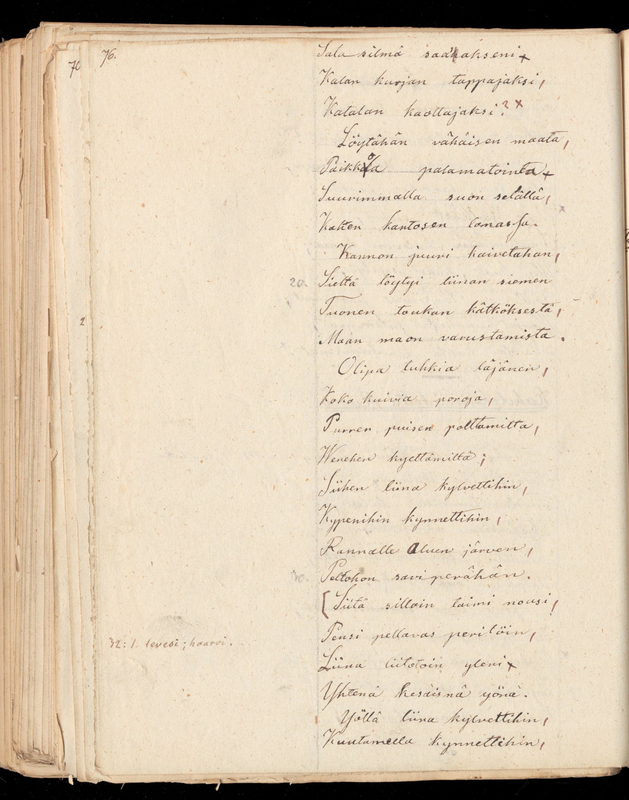 76.
70
Sala silmä saadakseni
Kalan kurjan tappajaksi,
Katalan kaottajaksi?
Löytähän vähäisen maata,
Paikkoa palamatointa
Suurimmalla suon selällä,
Kahen kantosen lomassa.
Kannon juuri kaivetahan,
20. Sieltä löytyi liinan siemen
Tuonen toukan kätköksestä,
Maan maon varustamista.
Olipa luhkia läjänen,
Koko kuivia poroja,
Purren puisen polttamilta,
Wenehen kyettämiltä;
Siihen liina kylvettihin,
Kypenihin kynnettihin,
Rannalle Aluen järven,
30. Peltohon saviperähän.
[Siitä silloin taimi nousi,
Pensi pellavas peritöin,
32: l. levesi; kaarvi.
Liina liitotoin yleni
Yhtenä kesäisnä yönä.
Yöllä liina kylvettihin,
Kuutamella kynnettihin,